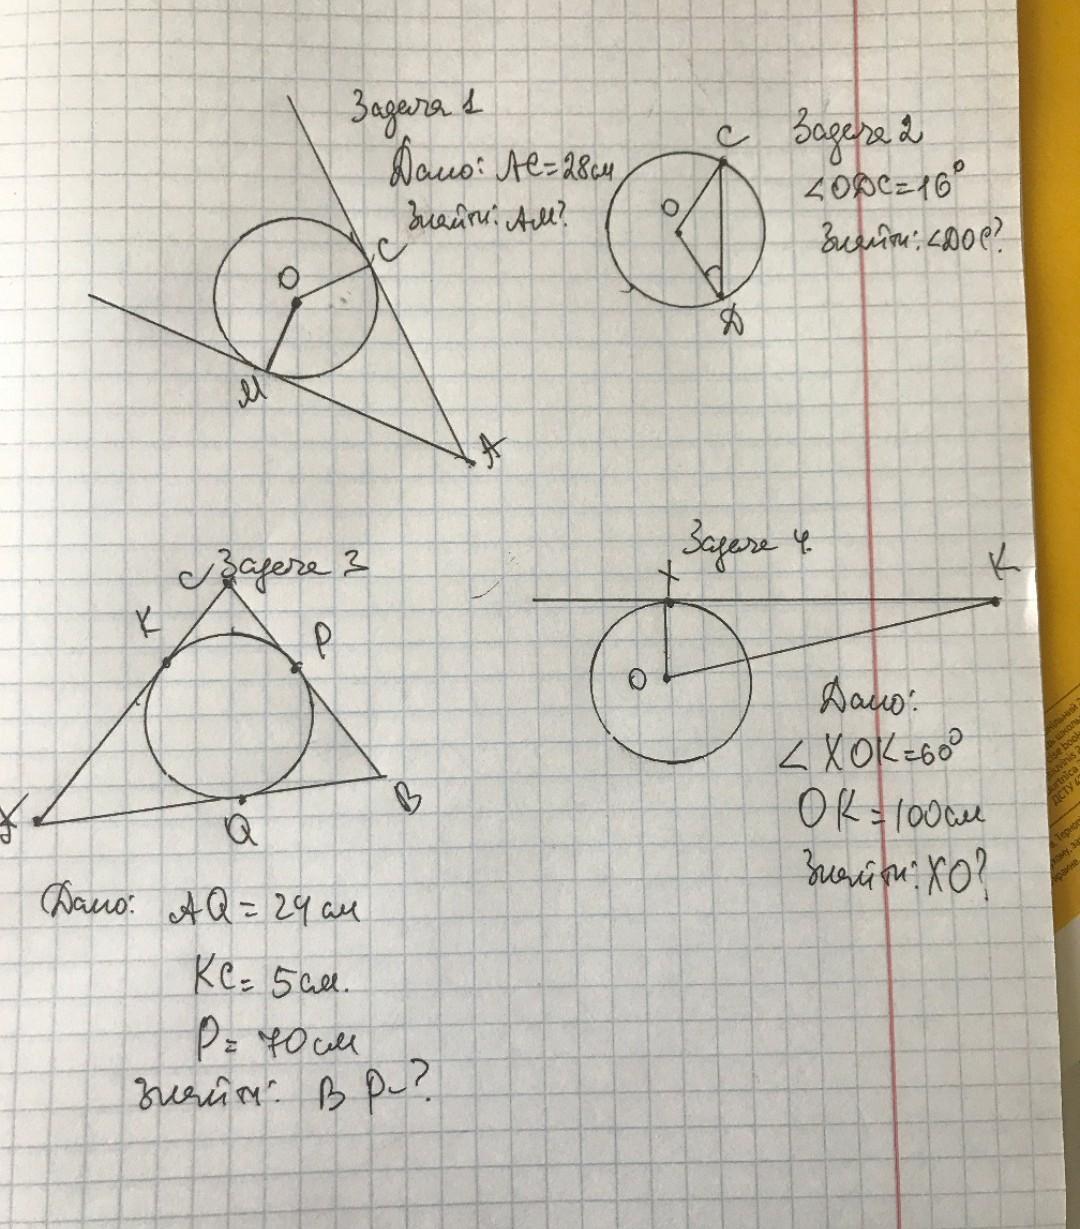 Задача 1
Дано: AC=28см
Знайти: AM?
O
C
M
A
Задача 2
∠ODC=16°
Знайти: ∠DOC?
C
O
D
Задача 3
C
K
P
B
Q
Дано: AQ = 24 см
KC = 5 см.
P = 70 см
Знайти: BP-?
Задача 4.
X
K
O
Дано:
∠XOK=60°
OK=100см
Знайти: XO?